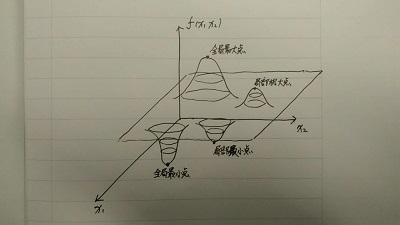 f(x₁ x₂)
全局最大点
局部极大点
x₂
局部极小点
全局最小点
x₁